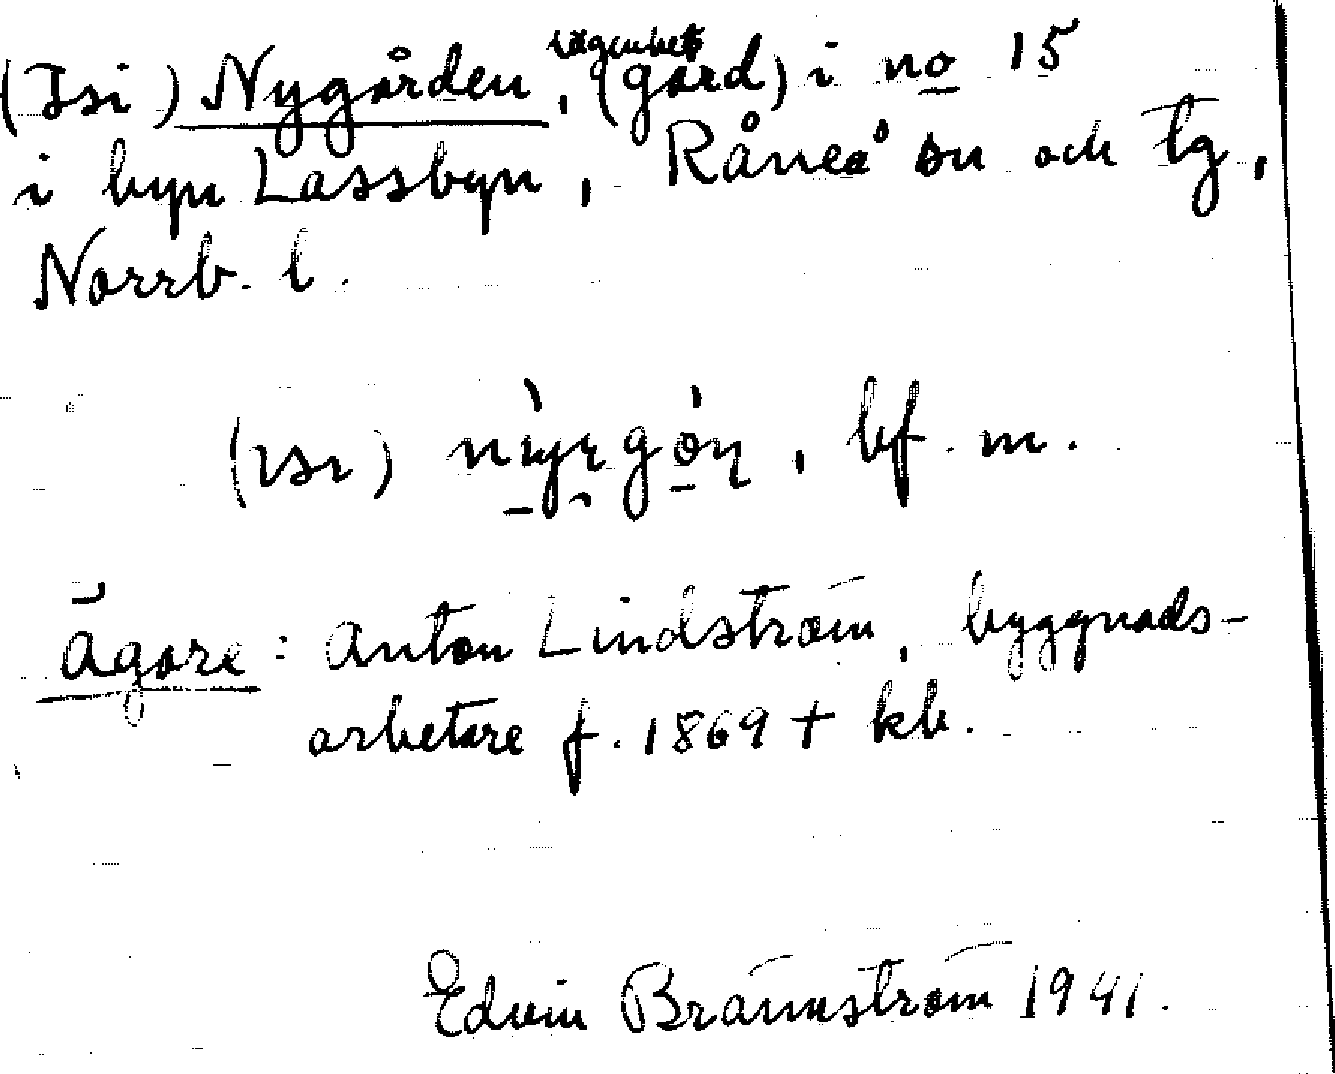 (Isi) Nygården, lägenhet (gård) i no 15
i byn Lassbyn, Råneå sn och tg,
Norrb. l.
(ısı) , bf. m.
Ägare: Anton Lindström, byggnads-
arbetare f. 1869 + kb.
Edvin Brännström 1941.